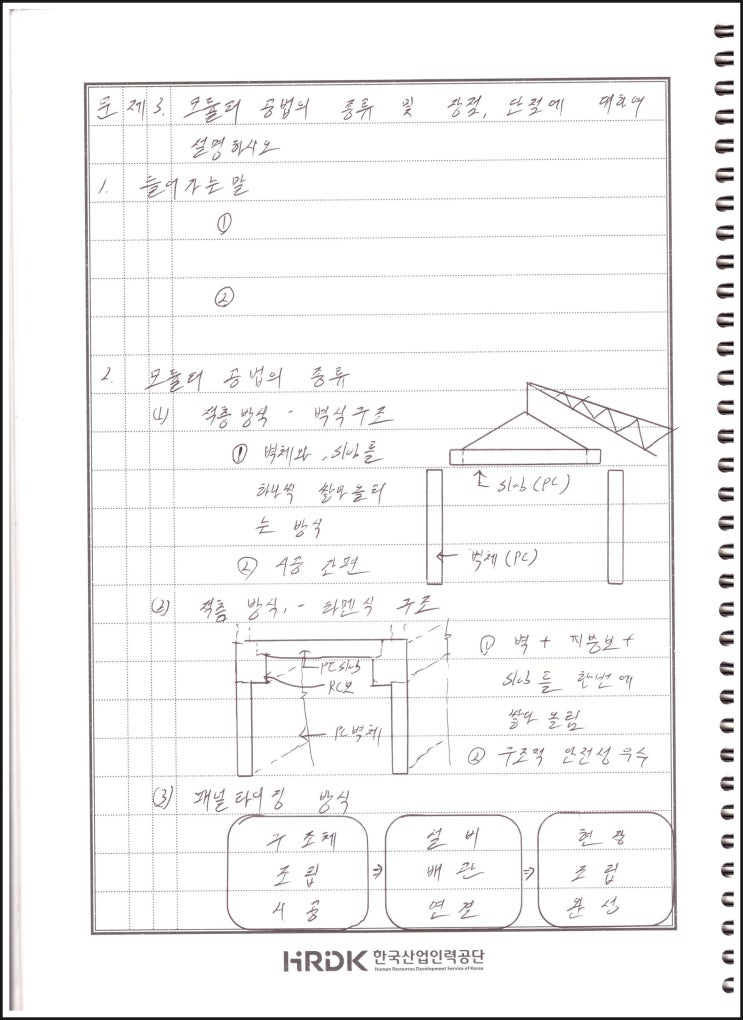 문 제 3. 모듈러 공법의 종류 및 장점, 단점에 대하여
설명하시오
1. 들어가는 말
①
②
2. 모듈러 공법의 종류
(1) 적층방식 - 벽식구조
① 벽체와 slab를
하나씩 쌓아올리
는 방식
② 시공 간편
slab (PC)
벽체 (PC)
(2) 적층 방식 - 라멘식 구조
PC slab
RC보
PC벽체
① 벽 + 지붕보 +
slab를 한번에
쌓아 올림
② 구조적 안전성 우수
(3) 패널타이징 방식
구조체
조립
시공
⇒
설비
배관
연결
⇒
현장
조립
완성
HRDK 한국산업인력공단
Human Resources Development Service of Korea